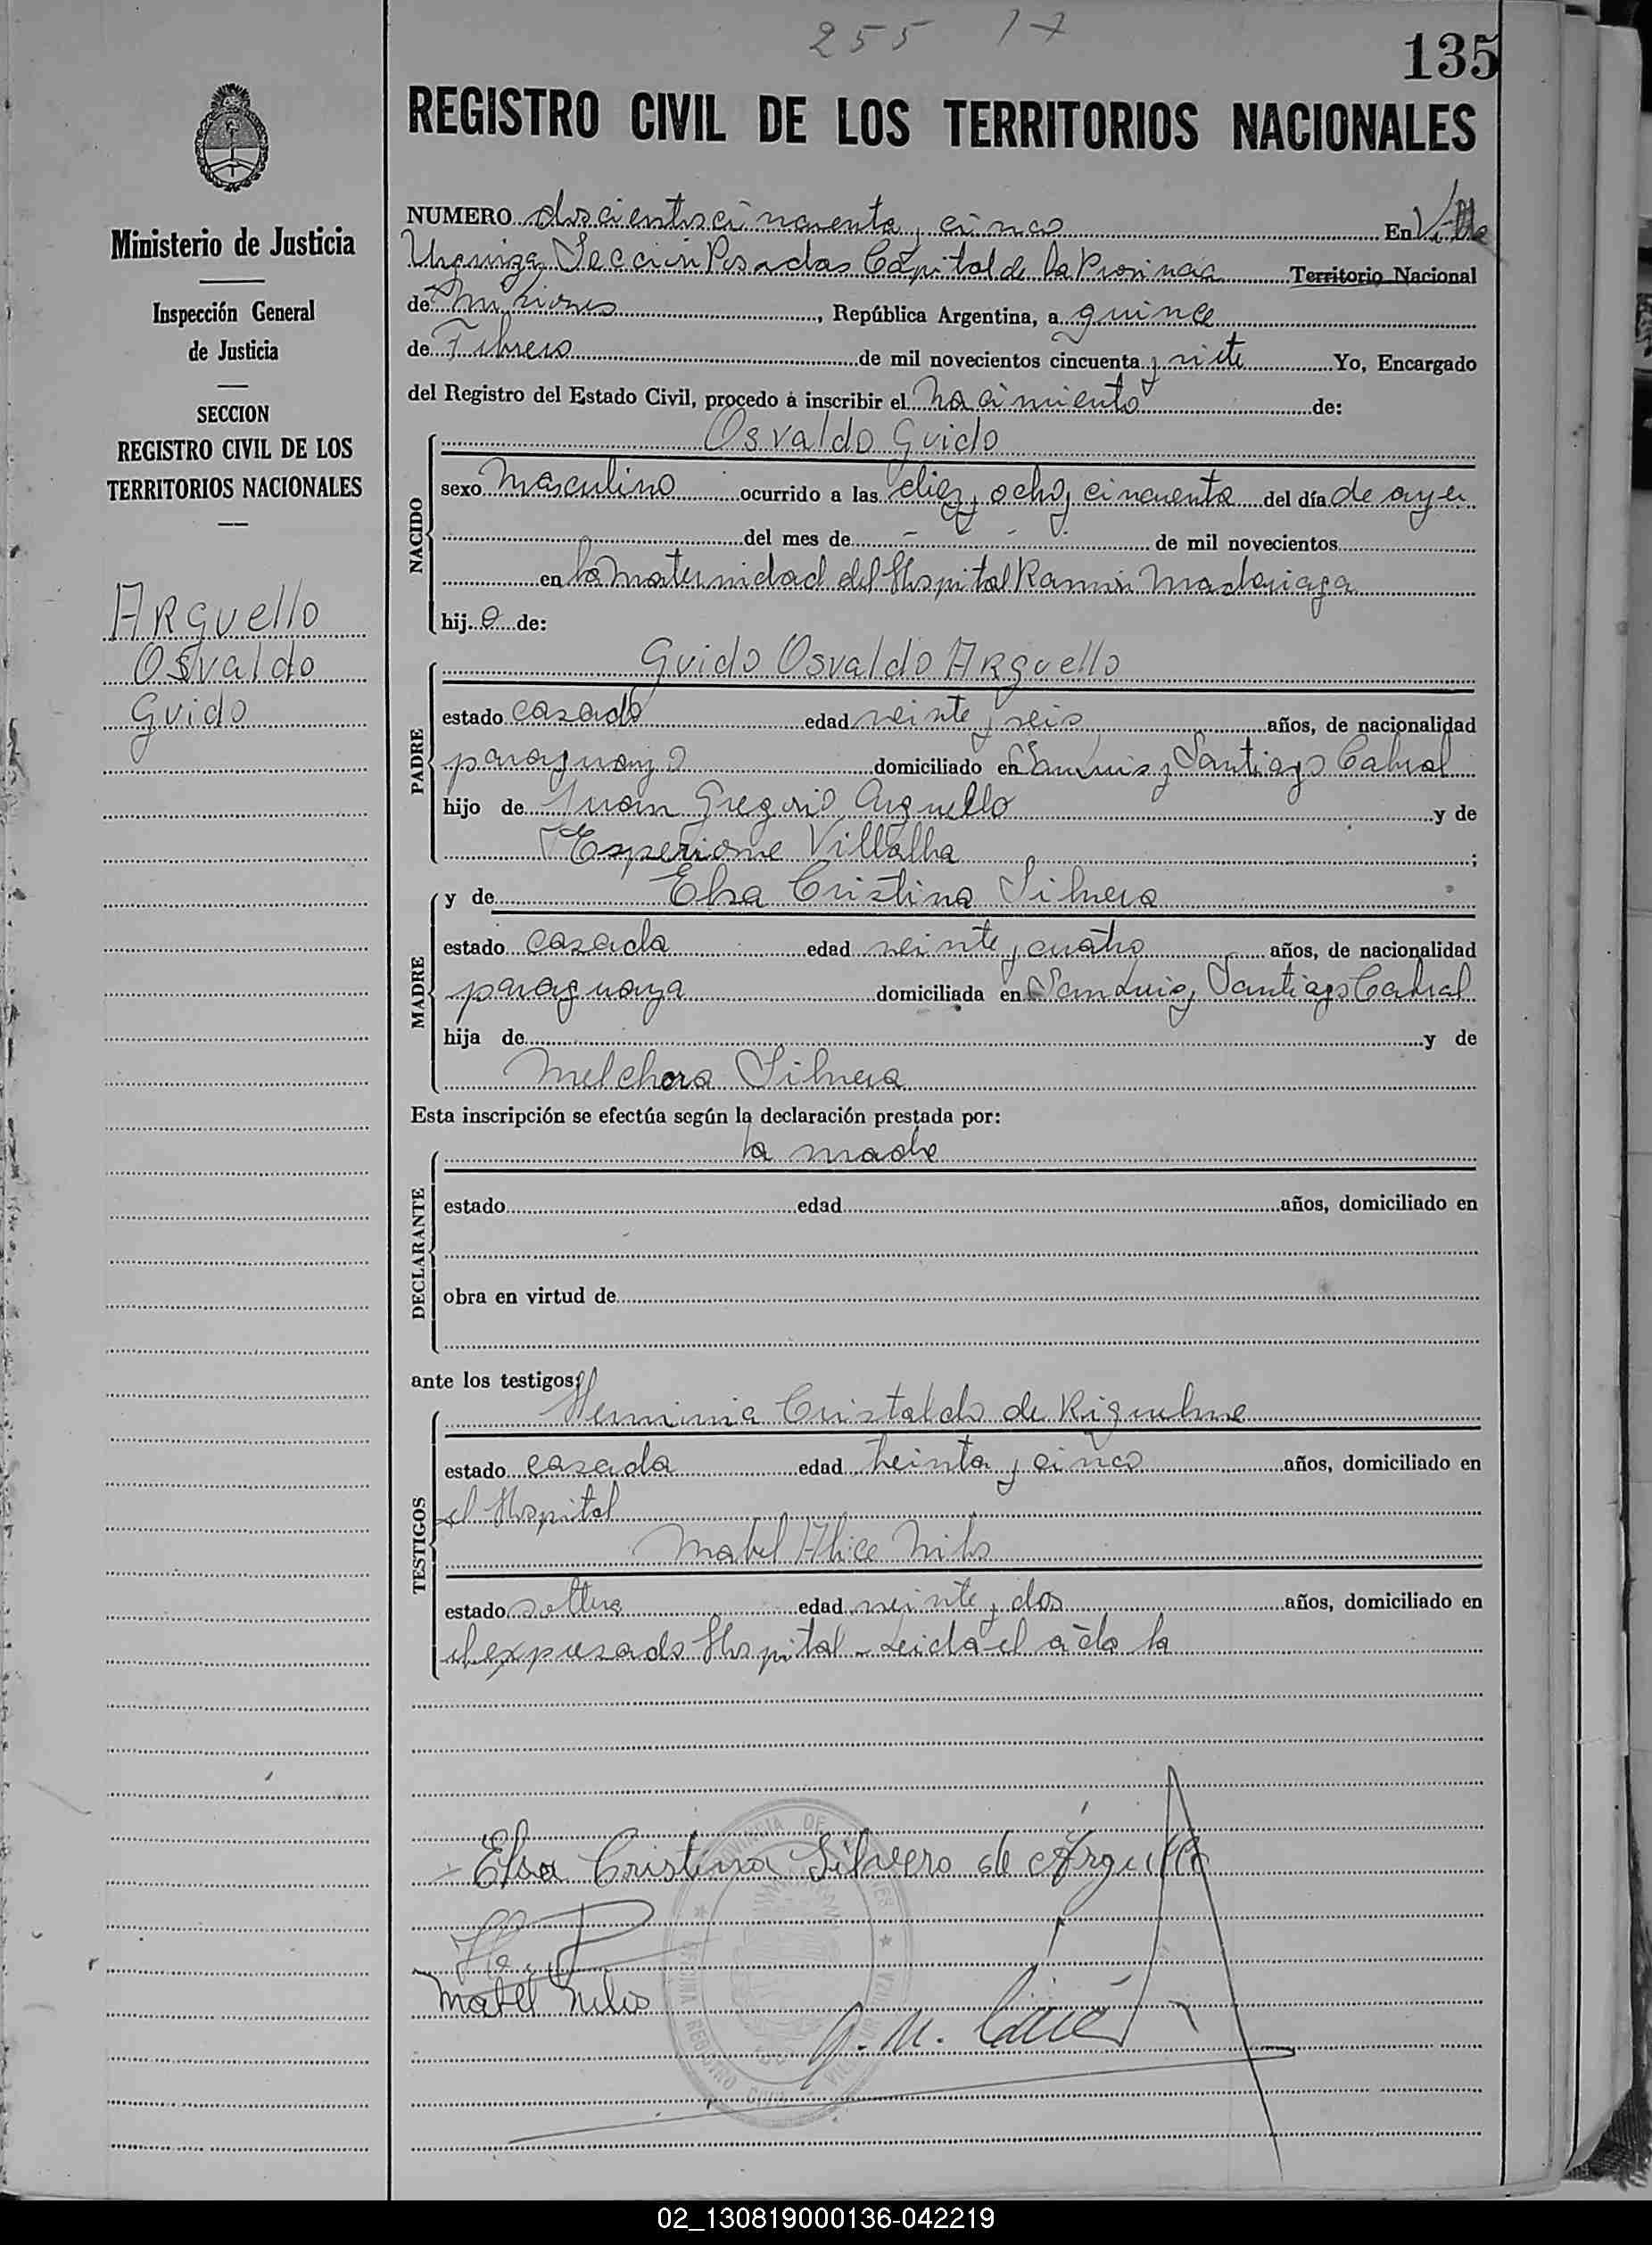 255 17
135
REGISTRO CIVIL DE LOS TERRITORIOS NACIONALES
Ministerio de Justicia
Inspección General
de Justicia
SECCION
REGISTRO CIVIL DE LOS
TERRITORIOS NACIONALES
Arguello
Osvaldo
Guido
NUMERO doscientos cincuenta y cinco En Villa
Urquiza, Sección Posadas Capital de la Provincia Territorio Nacional
de Misiones, República Argentina, a quince
de Febrero de mil novecientos cincuenta y siete Yo, Encargado
del Registro del Estado Civil, procedo á inscribir el nacimiento de:
NACIDO
Osvaldo Guido
sexo masculino ocurrido a las diez y ocho y cincuenta del día de ayer
del mes de - - de mil novecientos
en la maternidad del Hospital Ramón Madariaga
hijo de:
PADRE
Guido Osvaldo Arguello
estado casado edad veinte y seis años, de nacionalidad
paraguayo domiciliado en San Luis y Santiago Cabral
hijo de Juan Gregorio Arguello y de
Villalba;
MADRE
y de Elsa Cristina Silvera
estado casada edad veinte y cuatro años, de nacionalidad
paraguaya domiciliada en San Luis y Santiago Cabral
hija de y de
Melchora Silvera
Esta inscripción se efectúa según la declaración prestada por:
DECLARANTE
la madre
estado edad años, domiciliado en
obra en virtud de
ante los testigos:
TESTIGOS
Herminia Cristaldo de Riquelme
estado casada edad treinta y cinco años, domiciliado en
el Hospital
Mabel Alice
estado soltera edad veinte y dos años, domiciliado en
el expresado Hospital - Leida el acta la
Elsa Cristina Silvero de Arguello
Mabel
PROVINCIA DE
REGISTRO CIVIL
02_130819000136-042219